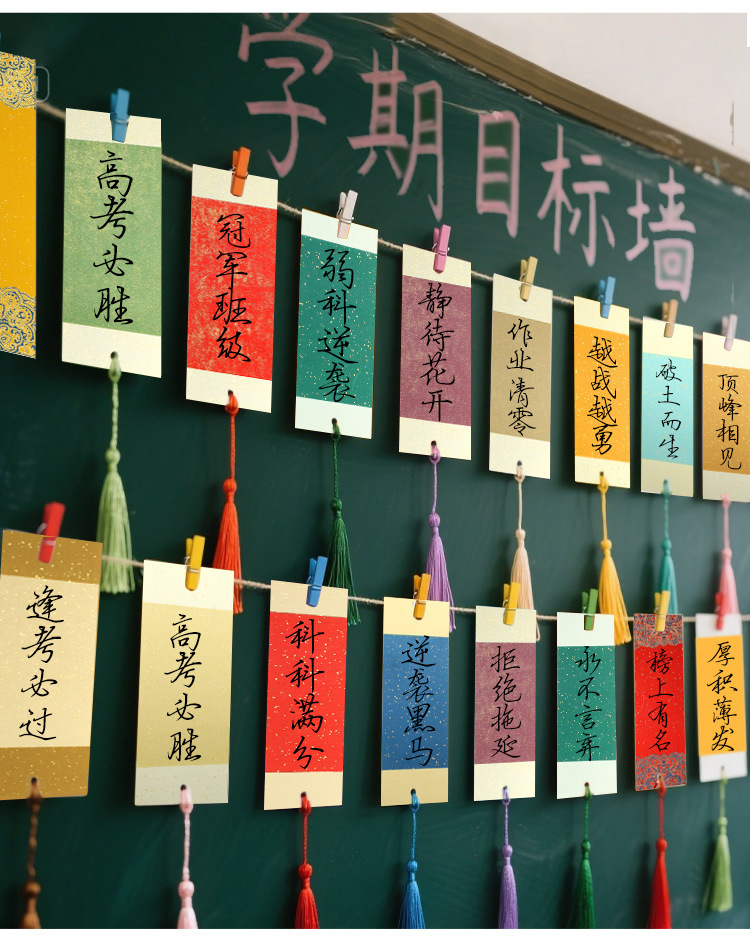 学期目标墙
高考必胜
冠军班级
弱科逆袭
静待花开
作业清零
越战越勇
破土而生
顶峰相见
逢考必过
高考必胜
科科满分
逆袭黑马
拒绝拖延
永不言弃
榜上有名
厚积薄发